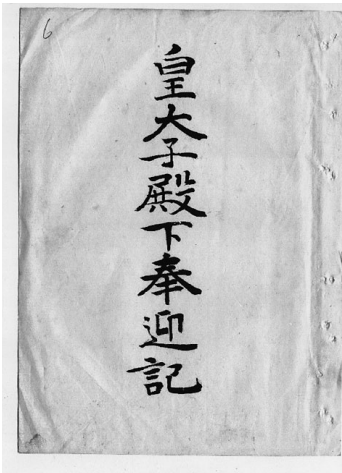 6
皇大子殿下奉迎記